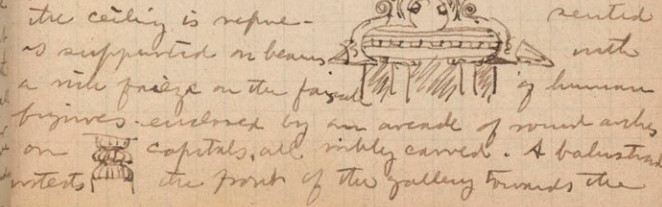 the ceiling is repre- sented
is supported on beams with
a rich frieze on the of human
figures enclosed by an arcade of round arches
on capitals, all richly carved. A balustrad
the front of the gallery towards the